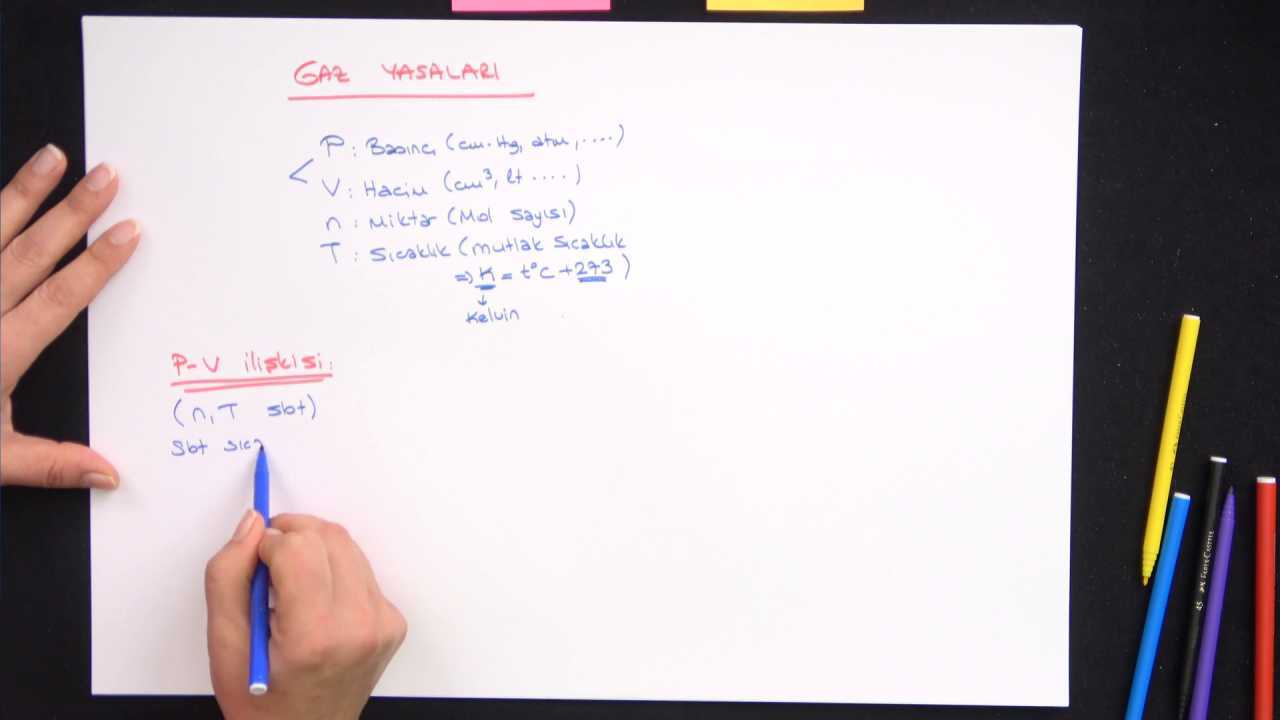 GAZ YASALARI
P: Basınç (cm-Hg, atm, ....)
V: Hacim (cm³, lt ....)
n: Miktar (Mol sayısı)
T: Sıcaklık (mutlak sıcaklık
=> K = t°C + 273)
Kelvin
P-V ilişkisi:
(n,T sbt)
Sbt sıca